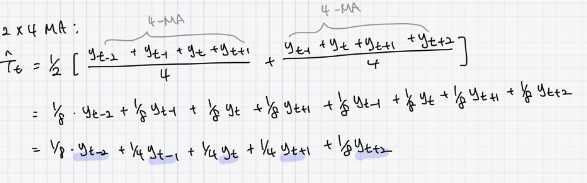 4-MA 4-MA
2 x 4 MA :
T̂t = ½ [ (yt-2 + yt-1 + yt + yt+1)/4 + (yt-1 + yt + yt+1 + yt+2)/4 ]
= 1/8 · yt-2 + 1/8 yt-1 + 1/8 yt + 1/8 yt+1 + 1/8 yt-1 + 1/8 yt + 1/8 yt+1 + 1/8 yt+2
= 1/8 · yt-2 + 1/4 yt-1 + 1/4 yt + 1/4 yt+1 + 1/8 yt+2